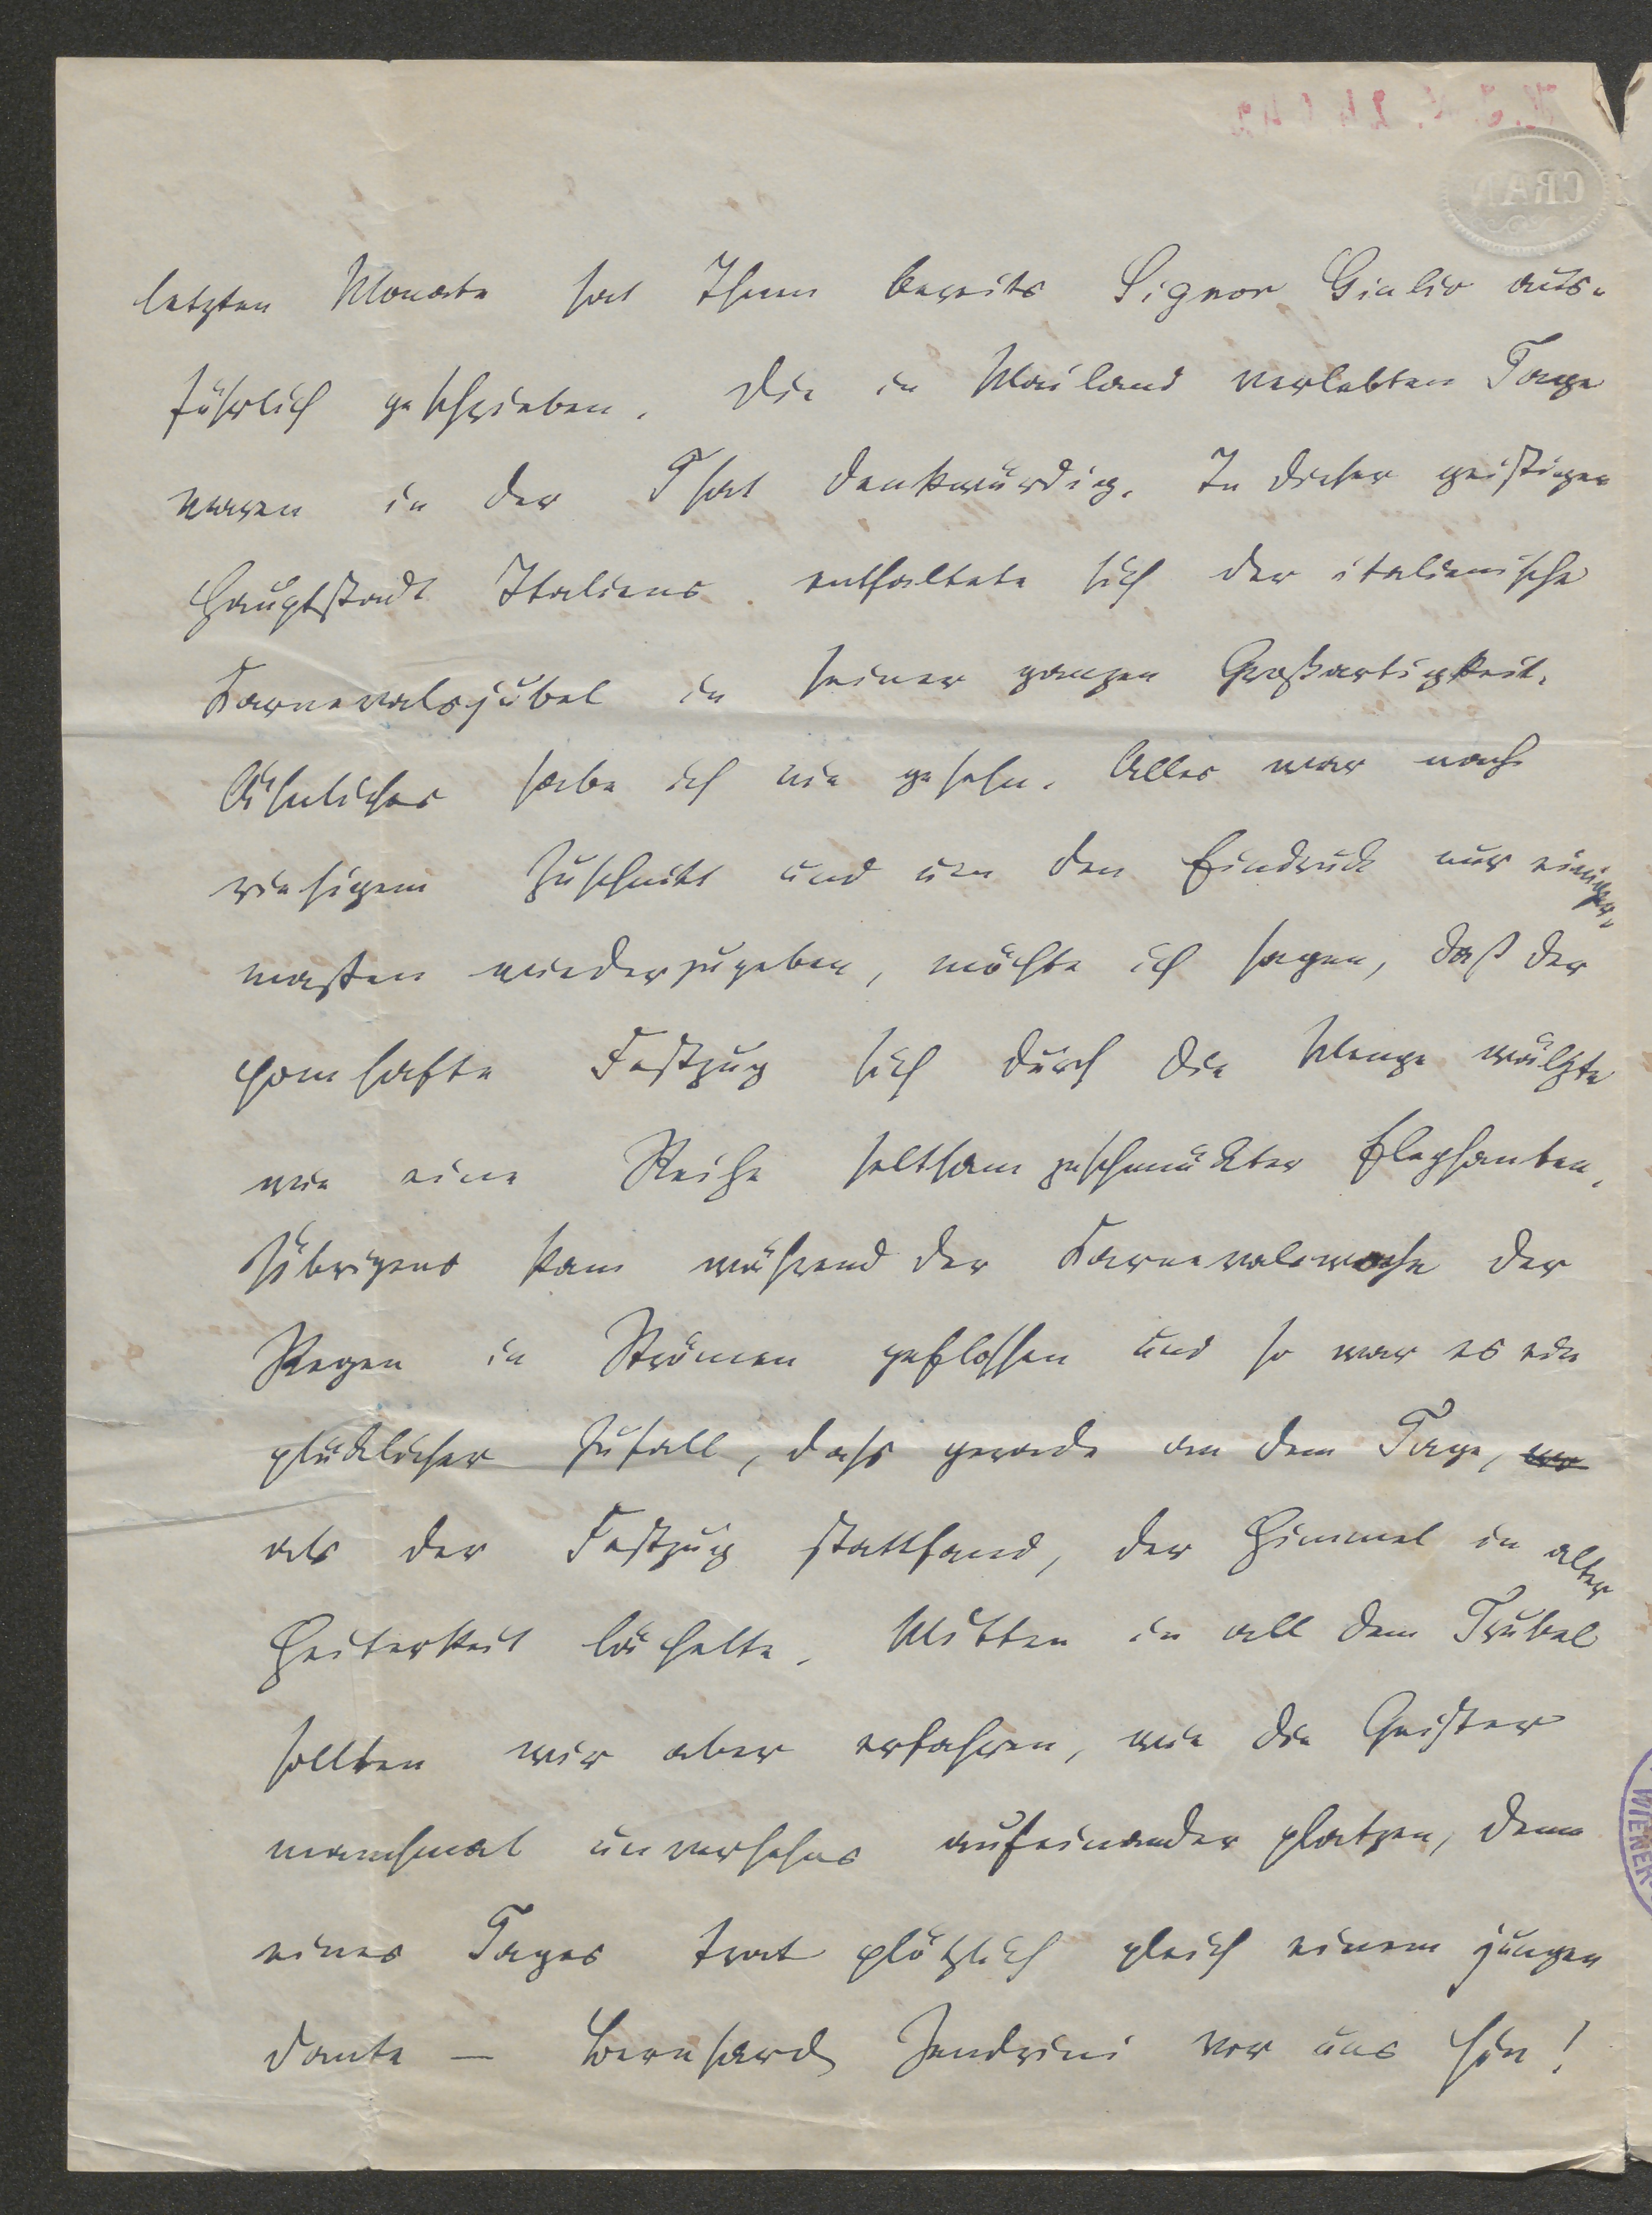 CRAN
letzten Monate hat Ihnen bereits Signor Giulio aus-
führlich geschrieben. Die in Mailand verlebten Tage
waren in der That denkwürdig. In dieser geistigen
Hauptstadt Italiens entfaltete sich der italienische
Karnevalsjubel in seiner ganzen Großartigkeit.
Ähnliches habe ich nie gesehn. Alles war nach
riesigem Zuschnitt und um den Eindruck nur einiger-
maßen wiederzugeben, möchte ich sagen, daß der
Festzug sich durch die Menge wälzte
wie eine Reihe seltsam geschmückter Elephanten.
Übrigens kam während der Karnevalswoche der
Regen in Strömen geflossen und so war es ein
glücklicher Zufall, dass gerade an dem Tage, wo
als der Festzug stattfand, der Himmel in alter
Heiterkeit lächelte. Mitten in all dem Trubel
sollten wir aber erfahren, wie die Geister
manchmal unversehns aufeinander platzen, denn
eines Tages trat plötzlich gleich einem jungen
Dante — Bernhard Zendrini vor uns hin!
WIENER